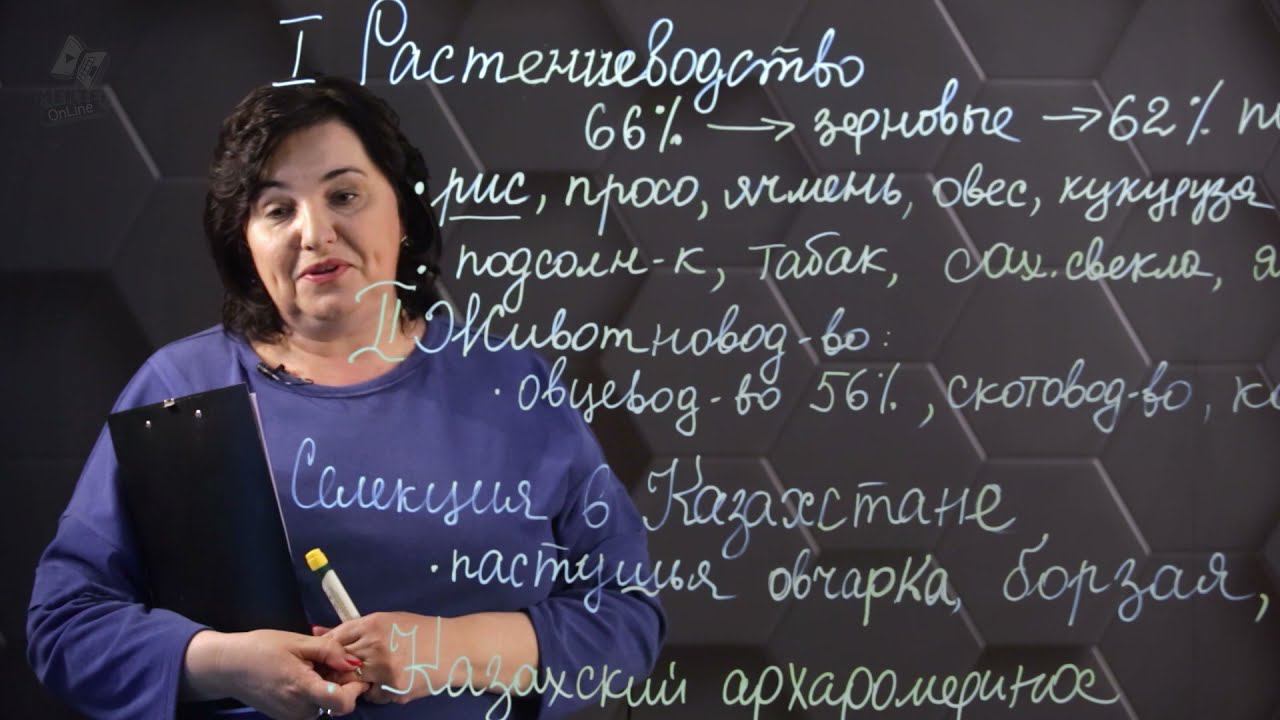 OnLine
I Растениеводство
66% → зерновые → 62% п
• рис, просо, ячмень, овес, кукуруза
• подсолн-к, табак, сах. свекла, я
II Животновод-во:
• овцевод-во 56%, скотовод-во, ко
Селекция в Казахстане
• пастушья овчарка, борзая,
• Казахский архаромеринос